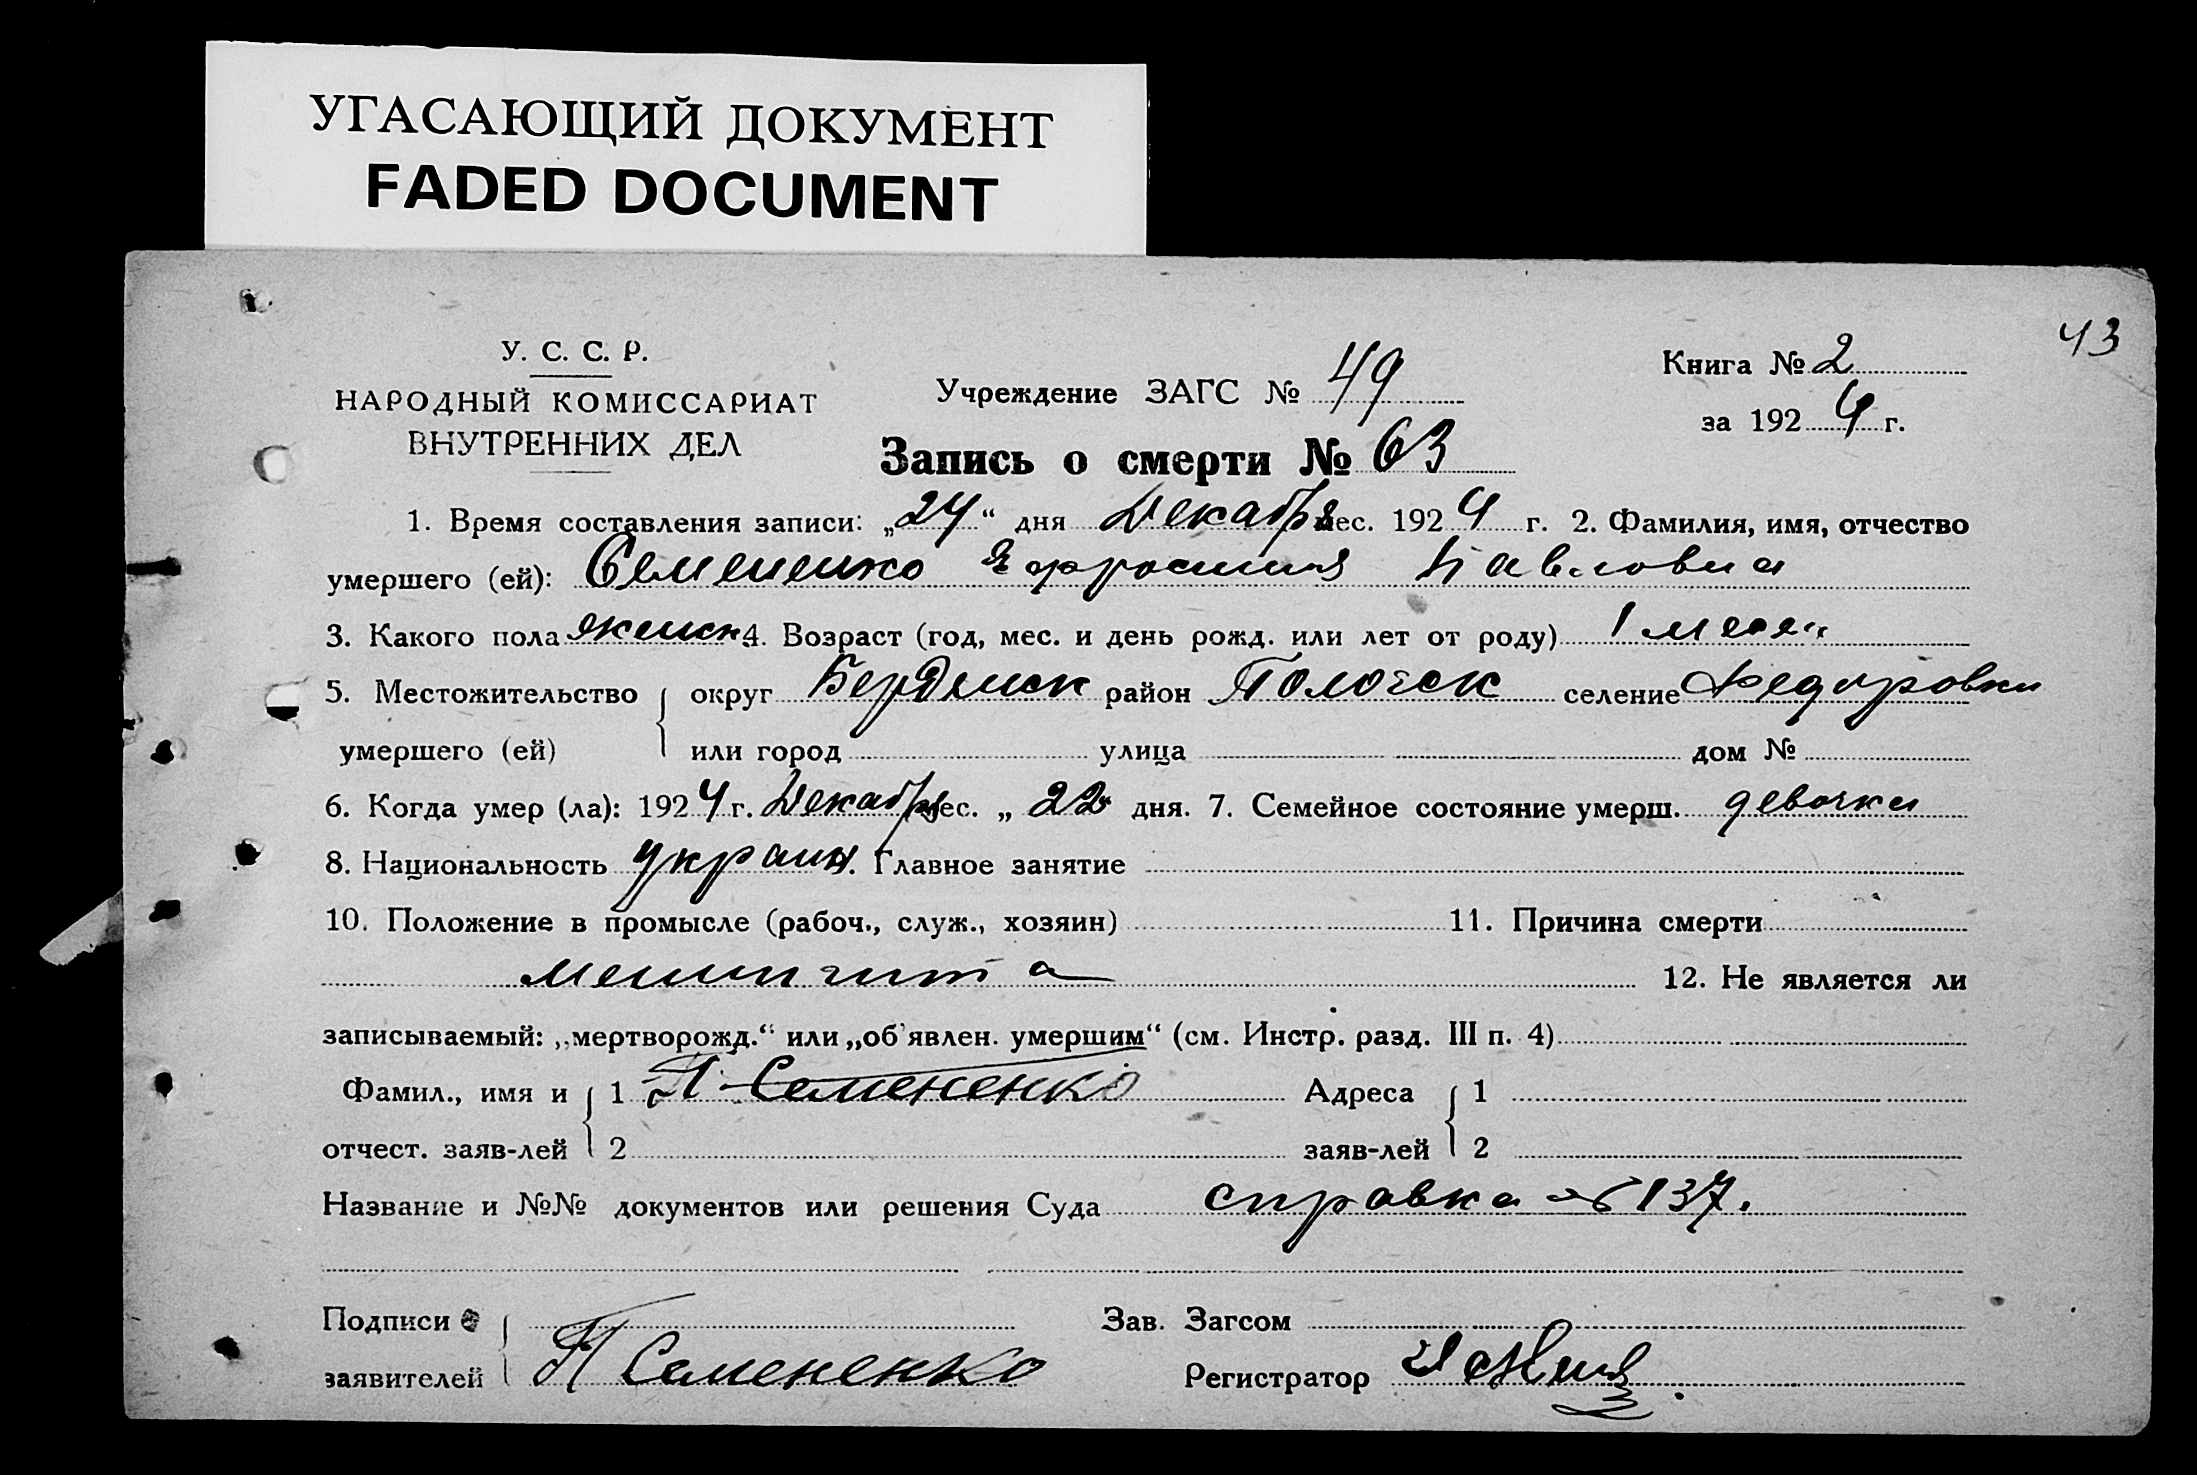 УГАСАЮЩИЙ ДОКУМЕНТ
FADED DOCUMENT
43
У. С. С. Р.
НАРОДНЫЙ КОМИССАРИАТ
ВНУТРЕННИХ ДЕЛ
Учреждение ЗАГС № 49
Книга № 2
за 1924 г.
Запись о смерти № 63
1. Время составления записи: „24“ дня Декабря мес. 1924 г. 2. Фамилия, имя, отчество
умершего (ей): Семененко Ефросиния Павловна
3. Какого пола женск 4. Возраст (год, мес. и день рожд. или лет от роду) 1 месяц
5. Местожительство округ Бердянск район Пологск селение Федоровка
умершего (ей) или город улица дом №
6. Когда умер (ла): 1924 г. Декабря мес. „ 22 дня. 7. Семейное состояние умерш. девочка
8. Национальность украин. Главное занятие
10. Положение в промысле (рабоч., служ., хозяин) 11. Причина смерти
менингита 12. Не является ли
записываемый: „мертворожд.“ или „об'явлен. умершим“ (см. Инстр. разд. III п. 4)
Фамил., имя и 1 П Семененко Адреса 1
отчест. заяв-лей 2 заяв-лей 2
Название и №№ документов или решения Суда справка № 137.
Подписи Зав. Загсом
заявителей П Семененко Регистратор